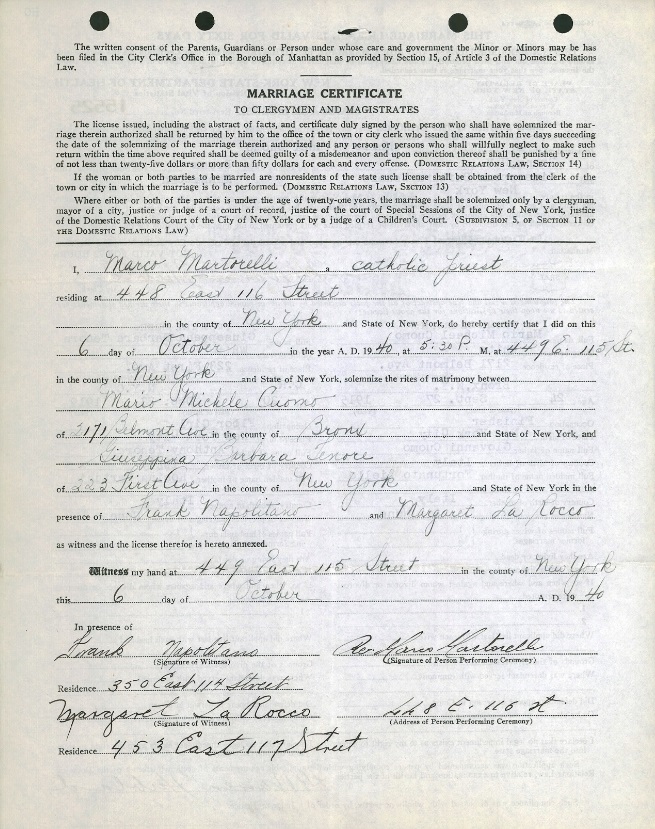 The written consent of the Parents, Guardians or Person under whose care and government the Minor or Minors may be
has been filed in the City Clerk's Office in the Borough of Manhattan as provided by Section 15, of Article 3 of the Domestic Relations
Law.
MARRIAGE CERTIFICATE
TO CLERGYMEN AND MAGISTRATES
The license issued, including the abstract of facts, and certificate duly signed by the person who shall have solemnized the mar-
riage therein authorized shall be returned by him to the office of the town or city clerk who issued the same within five days succeeding
the date of the solemnizing of the marriage therein authorized and any person or persons who shall willfully neglect to make such
return within the time above required shall be deemed guilty of a misdemeanor and upon conviction thereof shall be punished by a fine
of not less than twenty-five dollars or more than fifty dollars for each and every offense. (DOMESTIC RELATIONS LAW, SECTION 14)
If the woman or both parties to be married are nonresidents of the state such license shall be obtained from the clerk of the
town or city in which the marriage is to be performed. (DOMESTIC RELATIONS LAW, SECTION 13)
Where either or both of the parties is under the age of twenty-one years, the marriage shall be solemnized only by a clergyman,
mayor of a city, justice or judge of a court of record, justice of the court of Special Sessions of the City of New York, justice
of the Domestic Relations Court of the City of New York or by a judge of a Children's Court. (SUBDIVISION 5, OF SECTION 11 OF
THE DOMESTIC RELATIONS LAW)
I, Marco Martorelli a catholic priest
residing at 448 East 116 Street
in the county of New York and State of New York, do hereby certify that I did on this
6 day of October in the year A. D. 1940, at 5:30 P. M. at 449 E. 115 St.
in the county of New York and State of New York, solemnize the rites of matrimony between
Mario Michele Cuomo
of 2171 Belmont Ave in the county of Bronx and State of New York, and
Giuseppina Barbara Tenore
of 223 First Ave in the county of New York and State of New York in the
presence of Frank Napolitano and Margaret La Rocco
as witness and the license therefor is hereto annexed.
Witness my hand at 449 East 115 Street in the county of New York
this 6 day of October A. D. 1940
In presence of
Frank Napolitano Rev Marco Martorelli
(Signature of Witness) (Signature of Person Performing Ceremony)
Residence 350 East 114 Street
Margaret La Rocco 448 E. 116 st.
(Signature of Witness) (Address of Person Performing Ceremony)
Residence 453 East 117 Street